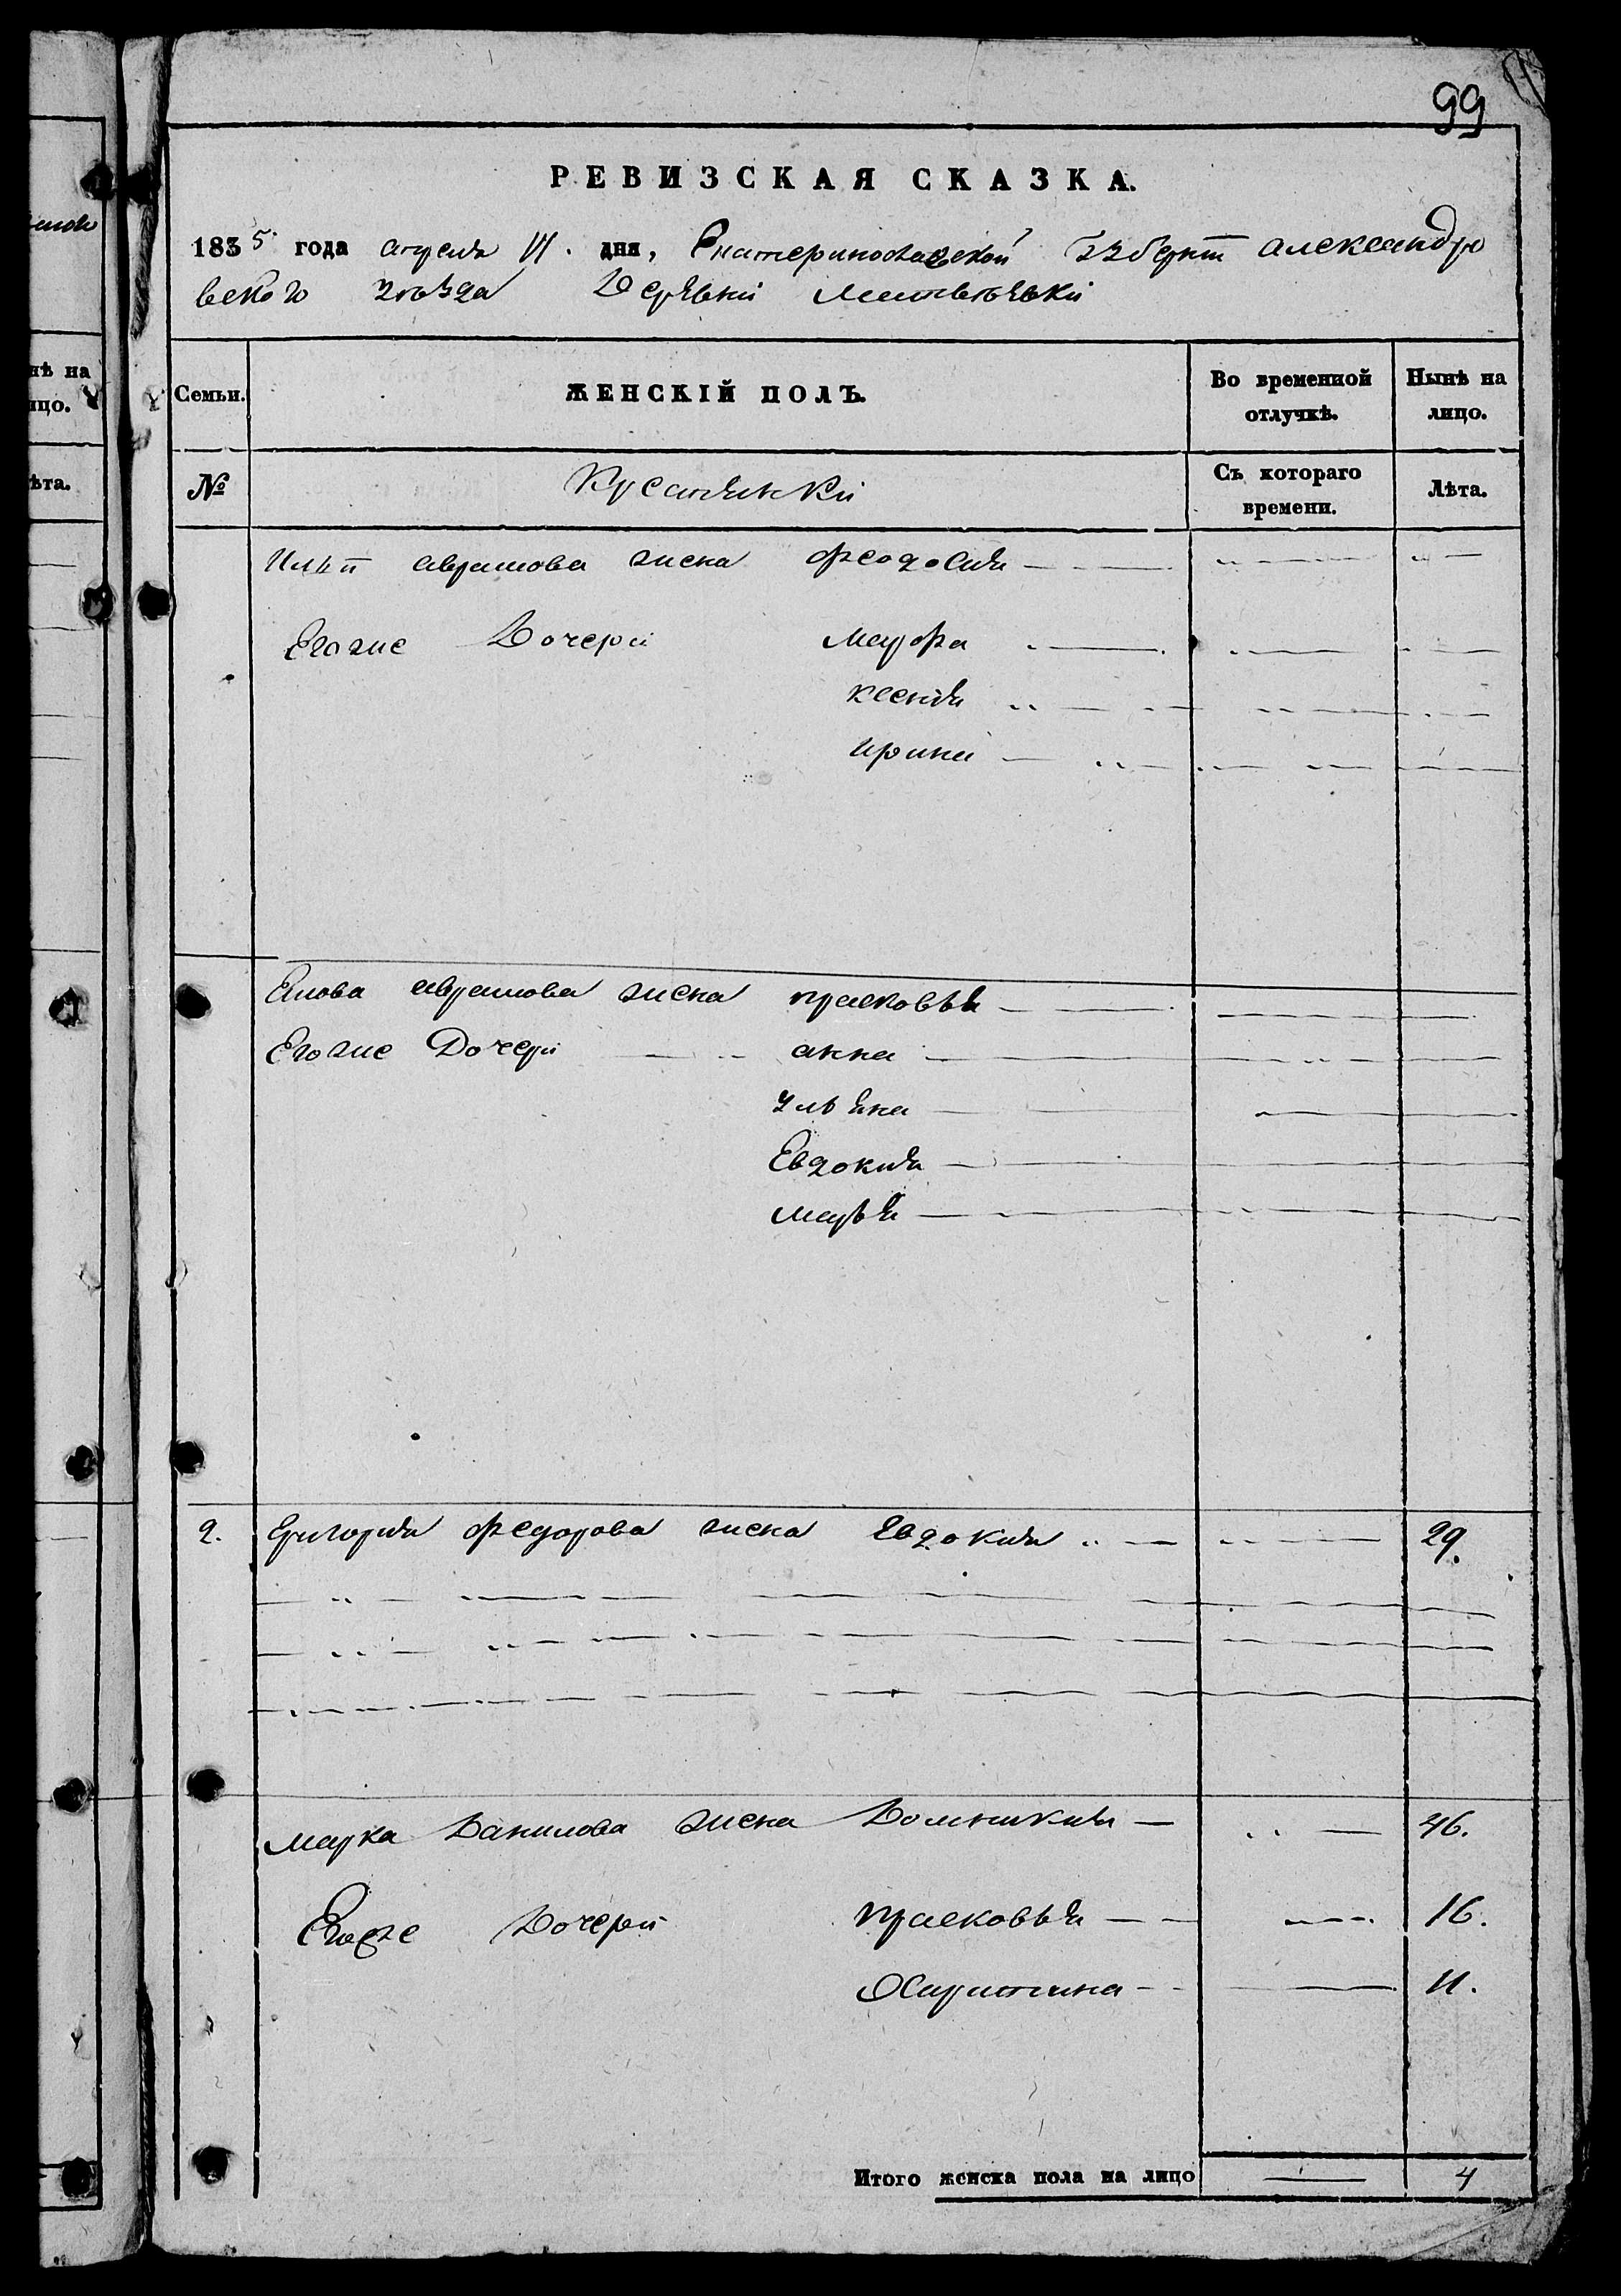 99
РЕВИЗСКАЯ СКАЗКА.
1835 года апреля VI. дня, Екатеринославской губернiи александро
вского уѣзда Деревни Матвеевки
нѣ на
ицо.
ѣта.
Семьи.
ЖЕНСКІЙ ПОЛЪ.
Во временной
отлучкѣ.
Нынѣ на
лицо.
№
Крестьянки
Съ котораго
времени.
Лѣта.
аврамова жена феодосия
Егоже Дочери мавра
ксения
ирина
аврамова жена прасковья
Егоже Дочери анна
ульяна
Евдокия
марья
2. Григория федорова жена Евдокия 29.
марка Данилова жена Домникия 46.
Егоже Дочери прасковья 16.
Харитина 11.
Итого женска пола на лицо 4